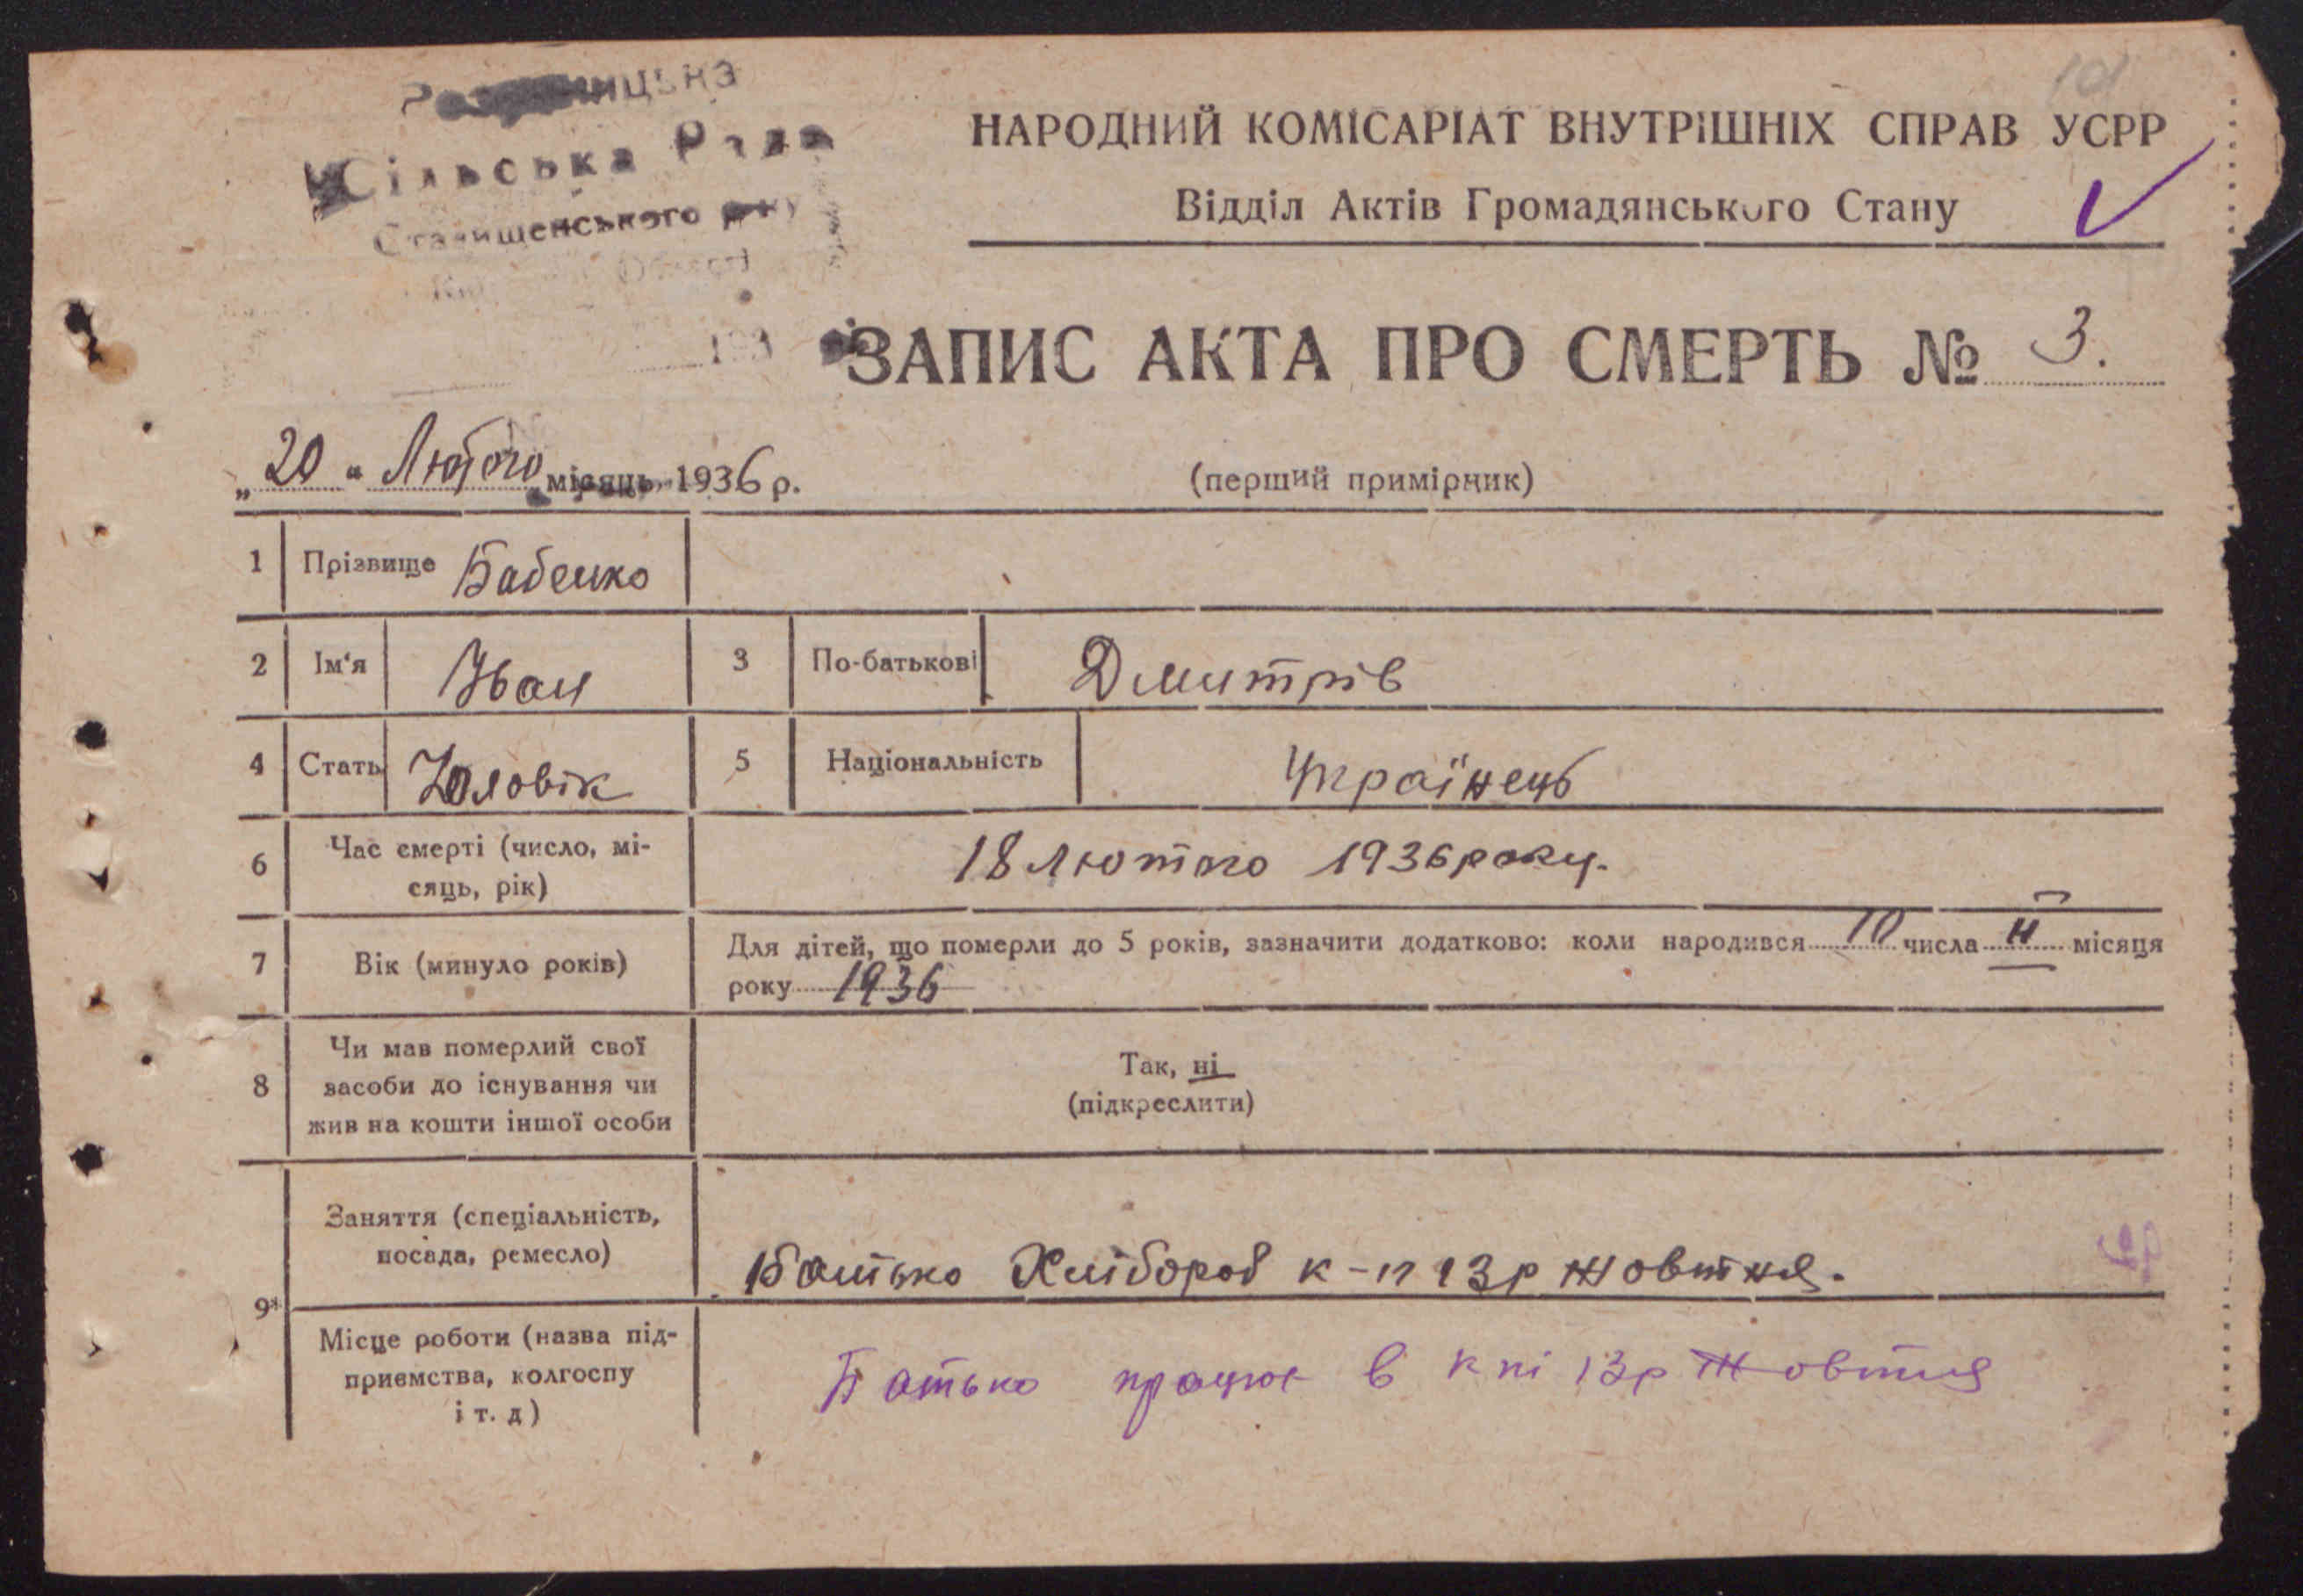 Сільська Рада
Ставищенського р-ну
НАРОДНИЙ КОМІСАРІАТ ВНУТРІШНІХ СПРАВ УСРР
Відділ Актів Громадянського Стану
193
ЗАПИС АКТА ПРО СМЕРТЬ № 3.
„20“ Лютого місяць 1936 р.
(перший примірник)
1 Прізвище Бабенко
2 Ім'я Иван 3 По-батькові Дмитрів
4 Стать Чоловік 5 Національність Українець
6 Час смерті (число, мі-
сяць, рік) 18 Лютого 1936 року.
7 Вік (минуло років) Для дітей, що померли до 5 років, зазначити додатково: коли народився 10 числа II місяця
року 1936
8 Чи мав померлий свої
засоби до існування чи
жив на кошти іншої особи
Так, ні
(підкреслити)
9*
Заняття (спеціальність,
посада, ремесло) Батько Хлібороб к-п 13 р Жовтня.
Місце роботи (назва під-
приємства, колгоспу
і т. д)
Батько працює в к пі 13 р Жовтня